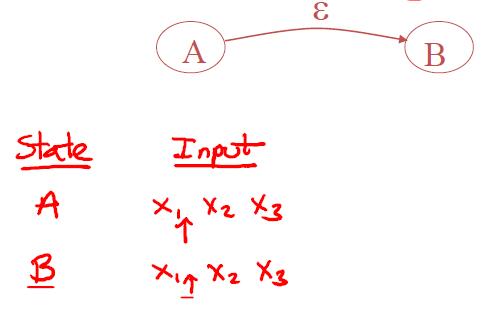 ε
A B
State Input
A x₁ x₂ x₃
B x₁ x₂ x₃